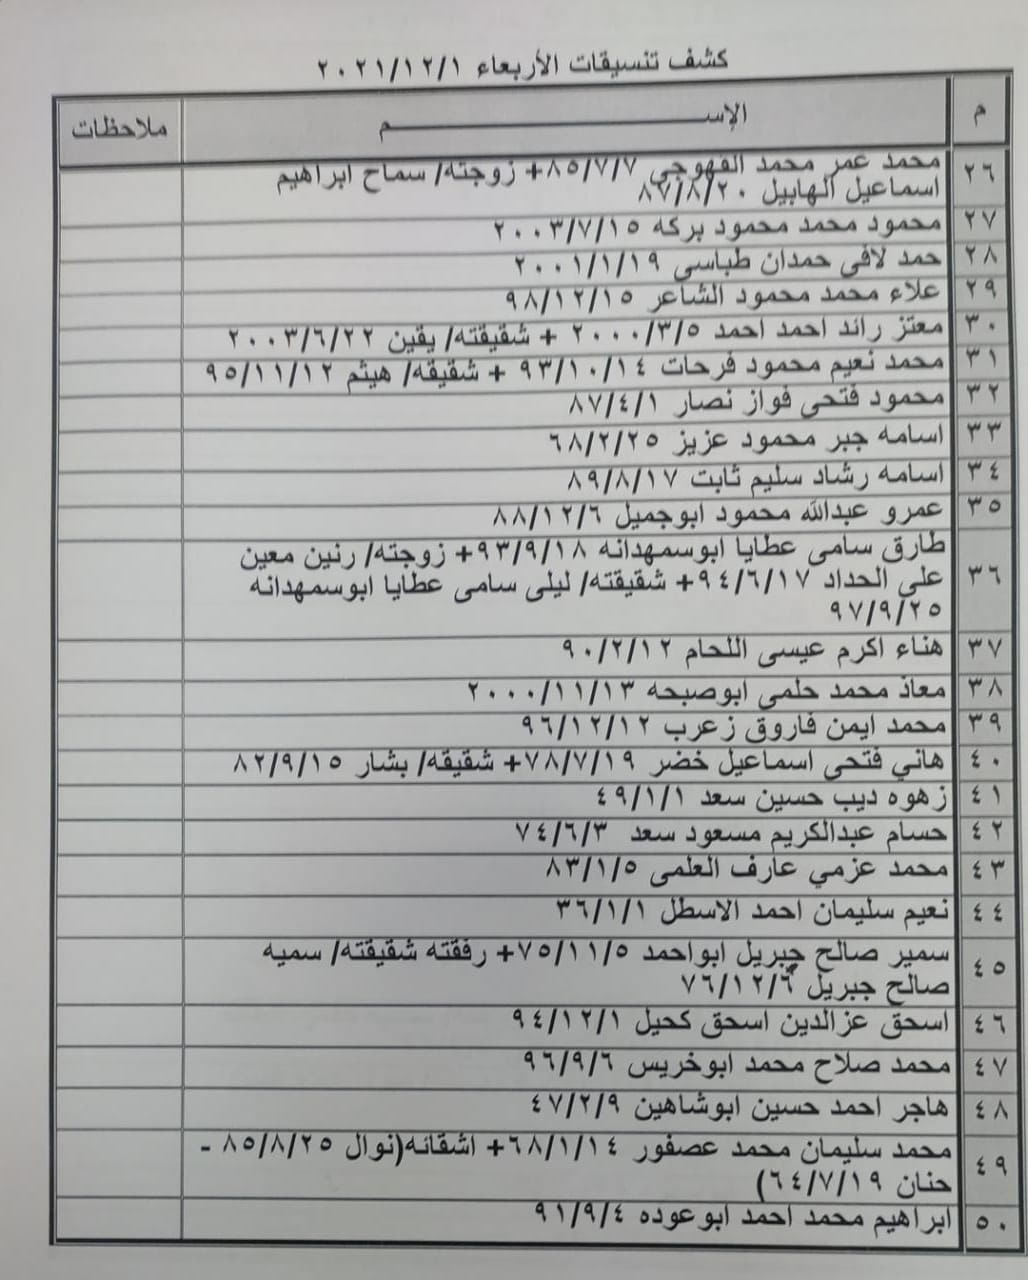 كشف تنسيقات الأربعاء ٢٠٢١/١٢/١
م الإســـــــــــــــم ملاحظات
٢٦ محمد عمر محمد القهوجي ٨٥/٧/٧+ زوجته/ سماح ابراهيم
اسماعيل الهابيل ٨٧/٨/٢٠
٢٧ محمود محمد محمود بركه ٢٠٠٣/٧/١٥
٢٨ حمد لافى حمدان طباسى ٢٠٠١/١/١٩
٢٩ علاء محمد محمود الشاعر ٩٨/١٢/١٥
٣٠ معتز رائد احمد احمد ٢٠٠٠/٣/٥ + شقيقته/ يقين ٢٠٠٣/٦/٢٢
٣١ محمد نعيم محمود فرحات ٩٣/١٠/١٤ + شقيقه/ هيثم ٩٥/١١/١٢
٣٢ محمود فتحى فواز نصار ٨٧/٤/١
٣٣ اسامه جبر محمود عزيز ٦٨/٢/٢٥
٣٤ اسامه رشاد سليم ثابت ٨٩/٨/١٧
٣٥ عمرو عبدالله محمود ابوجميل ٨٨/١٢/٦
طارق سامى عطايا ابوسمهدانه ٩٣/٩/١٨+ زوجته/ رنين معين
٣٦ على الحداد ٩٤/٦/١٧+ شقيقته/ ليلى سامى عطايا ابوسمهدانه
٩٧/٩/٢٥
٣٧ هناء اكرم عيسى اللحام ٩٠/٢/١٢
٣٨ معاذ محمد حلمى ابوصبحه ٢٠٠٠/١١/١٣
٣٩ محمد ايمن فاروق زعرب ٩٦/١٢/١٢
٤٠ هاني فتحى اسماعيل خضر ٧٨/٧/١٩+ شقيقه/ بشار ٨٢/٩/١٥
٤١ زهوه ديب حسين سعد ٤٩/١/١
٤٢ حسام عبدالكريم مسعود سعد ٧٤/٦/٣
٤٣ محمد عزمي عارف العلمى ٨٣/١/٥
٤٤ نعيم سليمان احمد الاسطل ٣٦/١/١
٤٥ سمير صالح جبريل ابواحمد ٧٥/١١/٥+ رفقته شقيقته/ سميه
صالح جبريل ٧٦/١٢/٦
٤٦ اسحق عزالدين اسحق كحيل ٩٤/١٢/١
٤٧ محمد صلاح محمد ابوخريس ٩٦/٩/٦
٤٨ هاجر احمد حسين ابوشاهين ٤٧/٢/٩
٤٩ محمد سليمان محمد عصفور ٦٨/١/١٤+ اشقائه(نوال ٨٥/٨/٢٥ -
حنان ٦٤/٧/١٩)
٥٠ ابراهيم محمد احمد ابوعوده ٩١/٩/٤